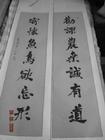 勤課農桑誠有道
寄懷魚鳥欲忘形